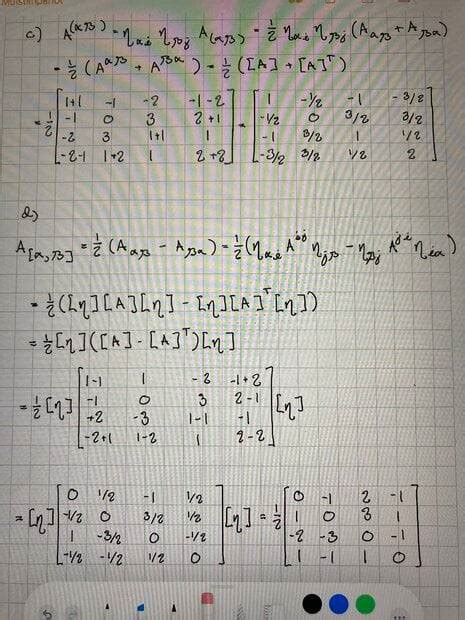 c) A^(αβ) = η_αi η_βj A_(αβ) = 1/2 η_αi η_βj (A_αβ + A_βα)
= 1/2 (A^αβ + A^βα) = 1/2 ([A] + [A]^T)
= 1/2 [1+1 -1 -2 -1-2; -1 0 3 2+1; -2 3 1+1 1; -2-1 1+2 1 2+2] = [1 -1/2 -1 -3/2; -1/2 0 3/2 3/2; -1 3/2 1 1/2; -3/2 3/2 1/2 2]
d)
A_[α,β] = 1/2 (A_αβ - A_βα) = 1/2 (η_αi A^ij η_jβ - η_βj A^ji η_iα)
= 1/2 ([η][A][η] - [η][A]^T[η])
= 1/2 [η]([A] - [A]^T)[η]
= 1/2 [η] [1-1 1 -2 -1+2; -1 0 3 2-1; +2 -3 1-1 -1; -2+1 1-2 1 2-2] [η]
= [η] [0 1/2 -1 1/2; -1/2 0 3/2 1/2; 1 -3/2 0 -1/2; -1/2 -1/2 1/2 0] [η] = 1/2 [0 -1 2 -1; 1 0 3 1; -2 -3 0 -1; 1 -1 1 0]